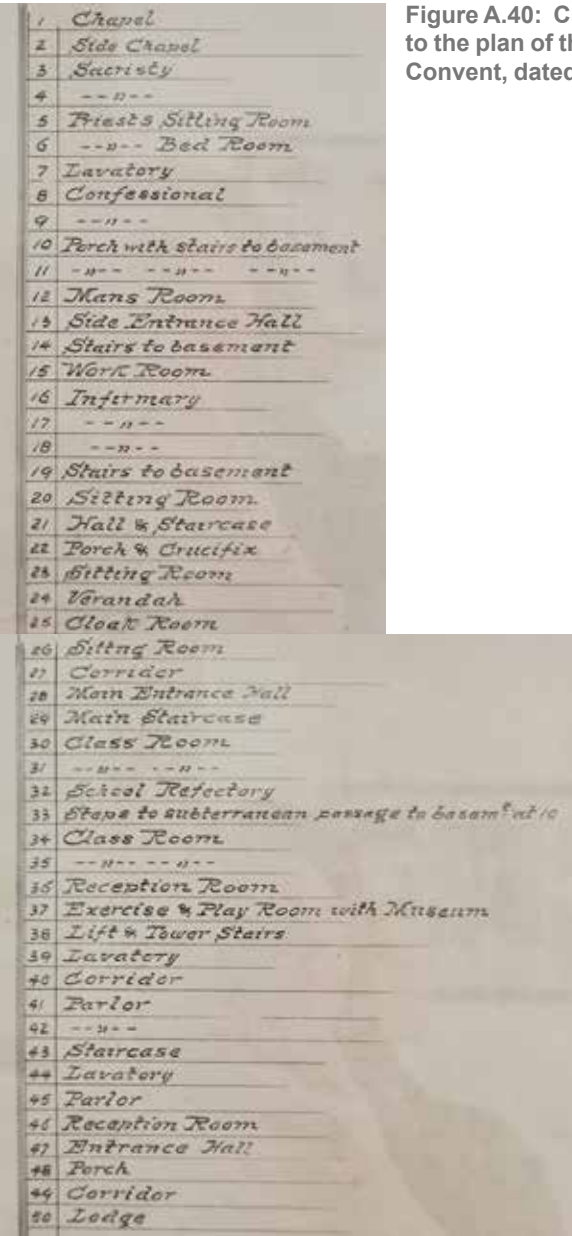 1 Chapel
2 Side Chapel
3 Sacristy
4 - - " - -
5 Priests Sitting Room
6 - - " - - Bed Room
7 Lavatory
8 Confessional
9 - - " - -
10 Porch with stairs to basement
11 - " - - - - " - - - - " - -
12 Mans Room
13 Side Entrance Hall
14 Stairs to basement
15 Work Room
16 Infirmary
17 - - " - -
18 - - " - -
19 Stairs to basement
20 Sitting Room
21 Hall & Staircase
22 Porch & Crucifix
23 Sitting Room
24 Verandah
25 Cloak Room
26 Sittng Room
27 Corridor
28 Main Entrance Hall
29 Main Staircase
30 Class Room
31 - - " - - - - " - -
32 School Refectory
33 Steps to subterranean passage to basemt at 10
34 Class Room
35 - - " - - - - " - -
36 Reception Room
37 Exercise & Play Room with Museum
38 Lift & Tower Stairs
39 Lavatory
40 Corridor
41 Parlor
42 - - " - -
43 Staircase
44 Lavatory
45 Parlor
46 Reception Room
47 Entrance Hall
48 Porch
49 Corridor
50 Lodge
Figure A.40: C
to the plan of th
Convent, dated